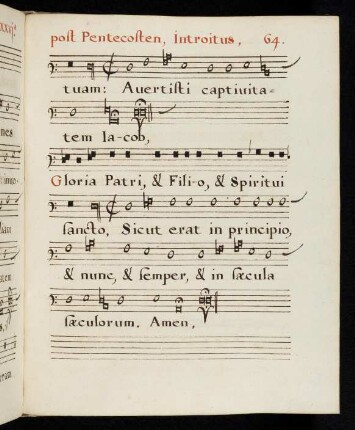 post Pentecosten, Introitus, 64.
tuam: Auertisti captiuita-
tem Ia-cob,
Gloria Patri, & Fili-o, & Spiritui
sancto, Sicut erat in principio,
& nunc, & semper, & in sæcula
sæculorum. Amen,